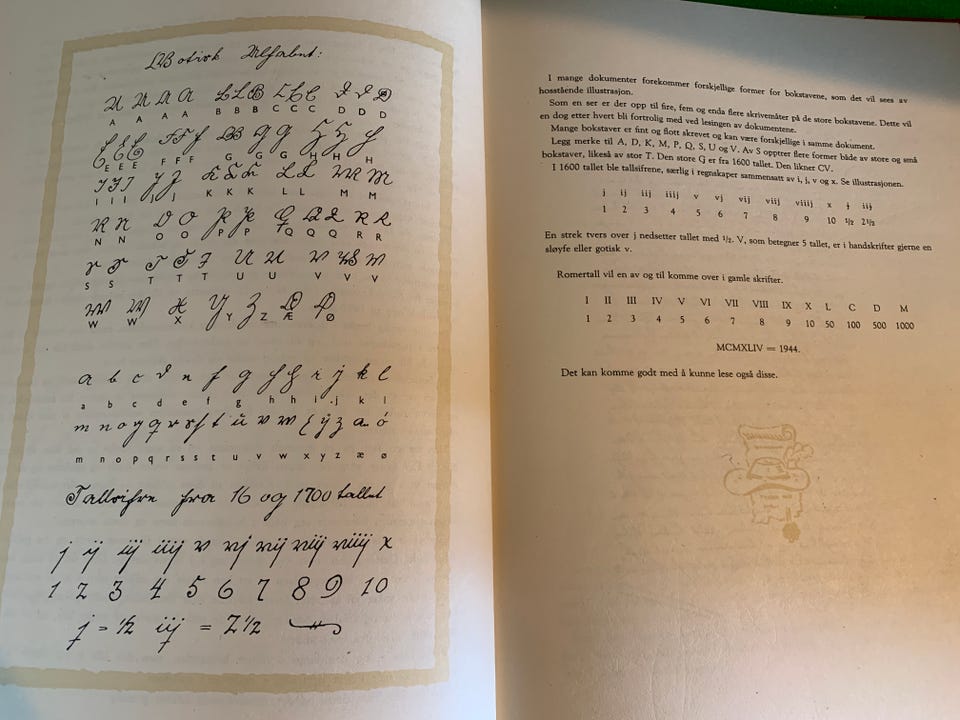 Gotisk Alfabet:
A A A A B B B C C C D D D
E E E F F F G G G H H H
I I I J J K K K L L M M
N N O O P P Q Q Q R R
S S T T T U U V V V
W W X Y Z Æ Ø
a b c d e f g h h i j k l
m n o p q r s s t u v w x y z æ ø
Tallsifre fra 16 og 1700 tallet
j ij iij iiij v vj vij viij viiij x
1 2 3 4 5 6 7 8 9 10
j = ½ iij = 2½
I mange dokumenter forekommer forskjellige former for bokstavene, som det vil sees av
hosstående illustrasjon.
Som en ser er der opp til fire, fem og enda flere skrivemåter på de store bokstavene. Dette vil
en dog etter hvert bli fortrolig med ved lesingen av dokumentene.
Mange bokstaver er fint og flott skrevet og kan være forskjellige i samme dokument.
Legg merke til A, D, K, M, P, Q, S, U og V. Av S opptrer flere former både av store og små
bokstaver, likeså av stor T. Den store G er fra 1600 tallet. Den likner CV.
I 1600 tallet ble tallsifrene, særlig i regnskaper sammensatt av i, j, v og x. Se illustrasjonen.
j ij iij iiij v vj vij viij viiij x j iij
1 2 3 4 5 6 7 8 9 10 ½ 2½
En strek tvers over j nedsetter tallet med ½. V, som betegner 5 tallet, er i handskrifter gjerne en
sløyfe eller gotisk v.
Romertall vil en av og til komme over i gamle skrifter.
I II III IV V VI VII VIII IX X L C D M
1 2 3 4 5 6 7 8 9 10 50 100 500 1000
MCMXLIV = 1944.
Det kan komme godt med å kunne lese også disse.